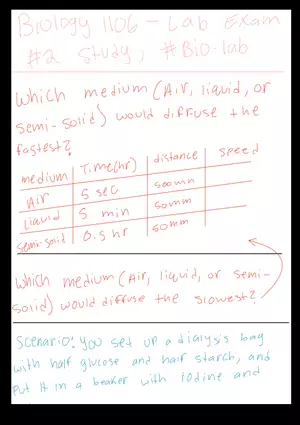 Biology 1106 - Lab Exam
#2 Study, #Bio-lab
Which medium (Air, liquid, or
semi-solid) would diffuse the
fastest?
medium Time(hr) distance speed
Air 5 sec 500mm
Liquid 5 min 50mm
Semi-solid 0.5 hr 50mm
Which medium (Air, liquid, or semi-
solid) would diffuse the slowest?
Scenario: You set up a dialysis bag
with half glucose and half starch, and
put it in a beaker with iodine and